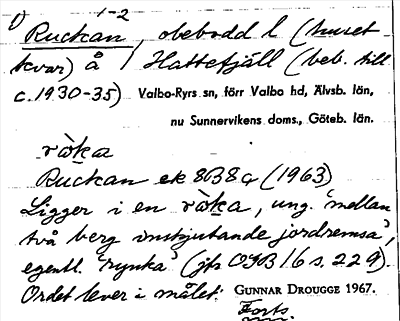 1) 1-2
Ruckan, obebodd l (huset
kvar) å Hattefjäll (beb. till
c. 1930-35) Valbo-Ryrs sn, förr Valbo hd, Älvsb. län,
nu Sunnervikens doms., Göteb. län.
ròka
Ruckan ek 8B8g (1963)
Ligger i en ròka, ung. 'mellan
två berg inskjutande jordremsa',
egentl. 'rynka' (jfr OGB 16 s. 229).
Ordet lever i målet. GUNNAR DROUGGE 1967.
Forts.